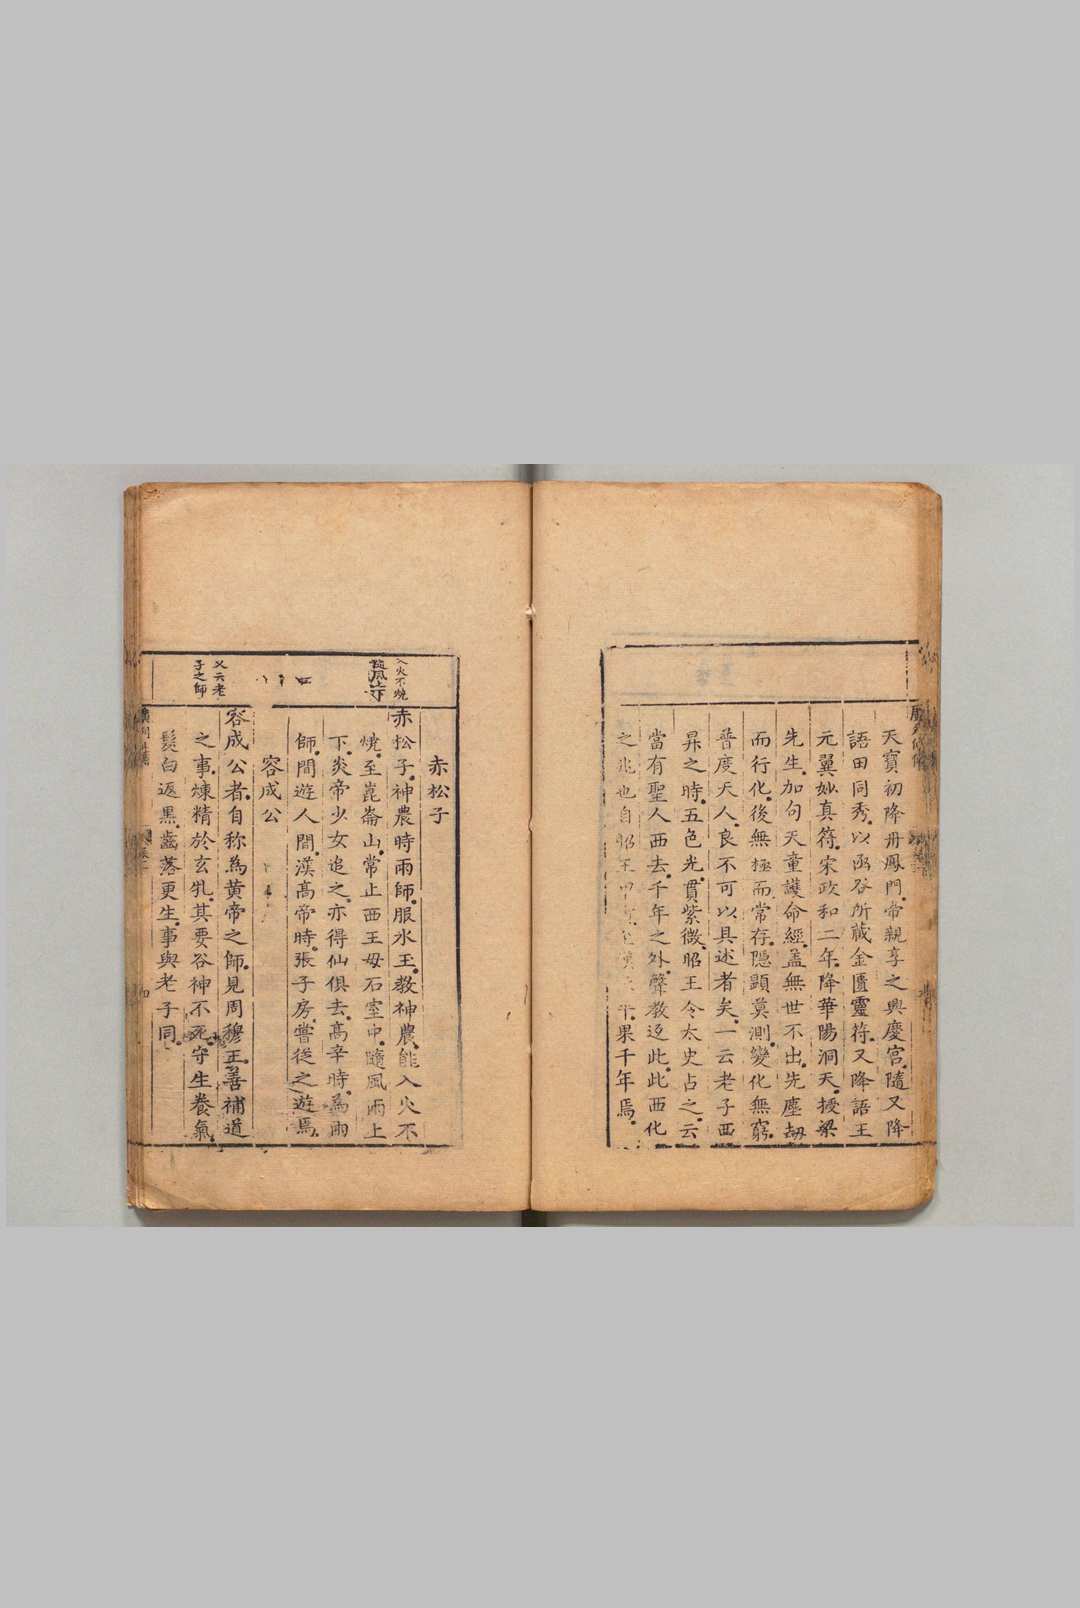 天寶初降丹鳳門帝親享之興慶宮隨又降
語田同秀以函谷所藏金匱靈符又降語王
元翼妙真符宋政和二年降華陽洞天授梁
先生加句天童護命經盖無世不出先塵劫
而行化後無極而常存隱顯莫測變化無窮
普度天人良不可以具述者矣一云老子西
昇之時五色光貫紫微昭王令太史占之云
當有聖人西去千年之外聲教迈此此西化
之兆也自昭王
果千年焉
入火不燒
隨風
赤松子
赤松子神農時雨師服氷玉教神農能入火不
燒至崑崙山常止西王母石室中隨風雨上
下炎帝少女追之亦得仙俱去高辛時為雨
師間遊人間漢高帝時張子房嘗從之遊焉
容成公
又云老
子之師
容成公者自称為黄帝之師見周穆王善補道
之事煉精於玄牝其要谷神不死守生養氣
髮白返黒齒落更生事與老子同